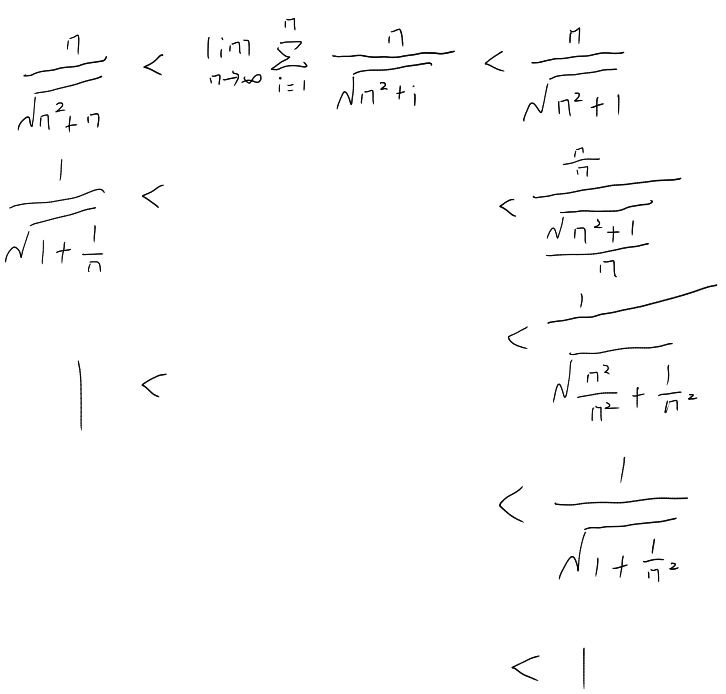 n/√(n²+n) < lim n→∞ Σ i=1 n n/√(n²+i) < n/√(n²+1)
1/√(1+1/n) < < (n/n)/(√(n²+1)/n)
< 1/√(n²/n²+1/n²)
1 <
< 1/√(1+1/n²)
< 1